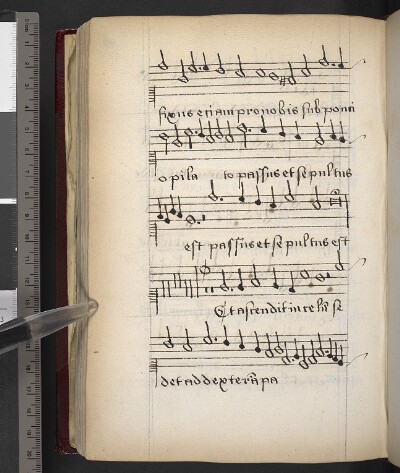 fixus etiam pro nobis sub ponci
o pila to passus et sepultus
est passus et sepultus est
Et ascendit in celū se
det ad dexterā pa